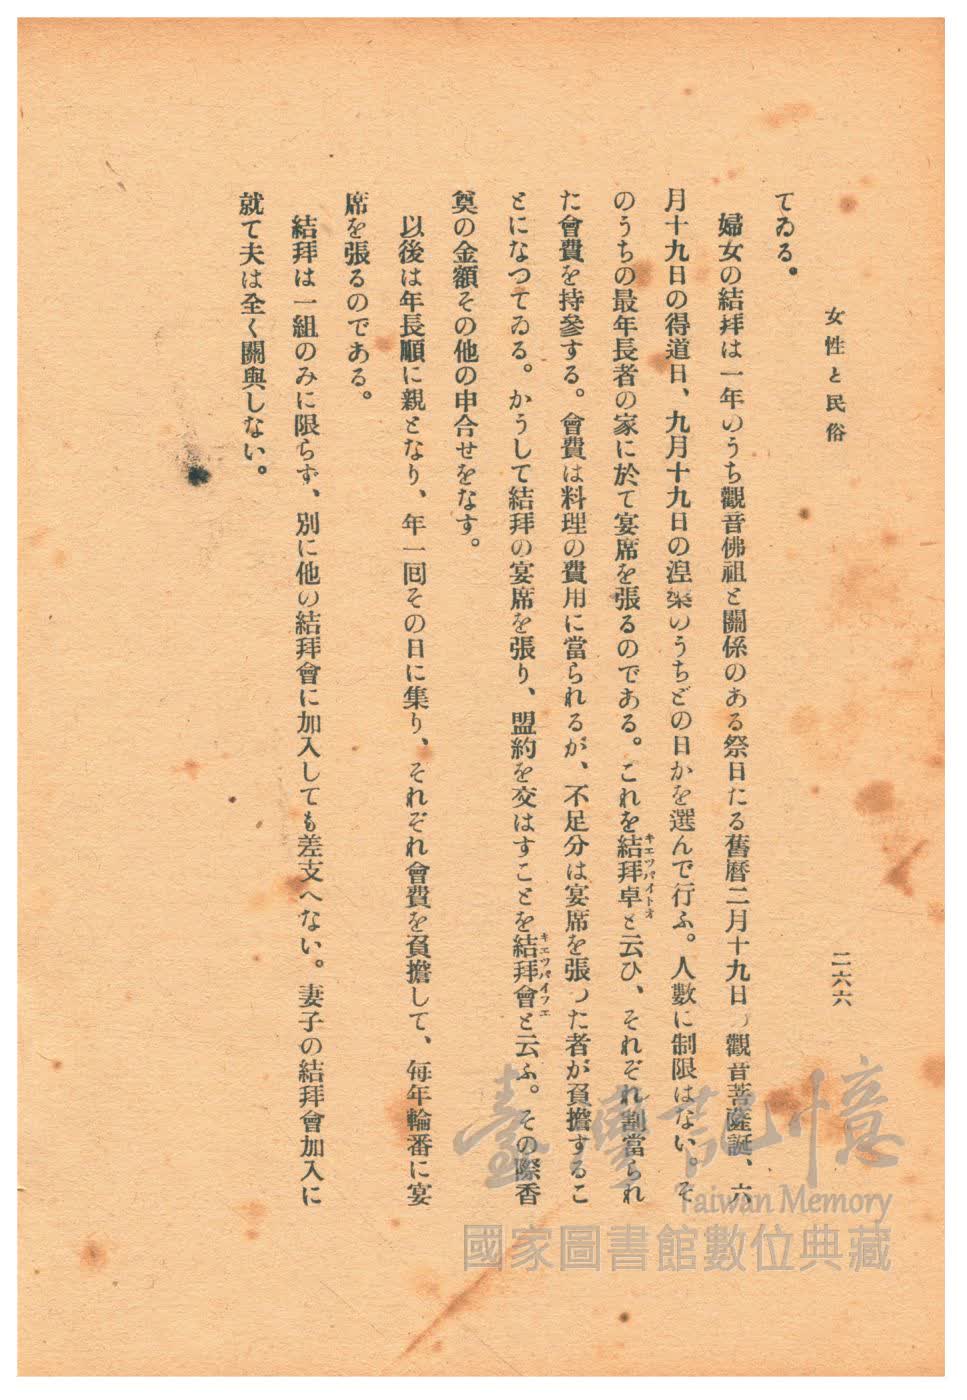 女性と民俗
二六六
てゐる。
婦女の結拜は一年のうち觀音佛祖と關係のある祭日たる舊曆二月十九日の觀音菩薩誕、六
月十九日の得道日、九月十九日の涅槃のうちどの日かを選んで行ふ。人數に制限はない。そ
のうちの最年長者の家に於て宴席を張るのである。これを結拜卓と云ひ、それぞれ割當られ
キエツパイトオ
た會費を持參する。會費は料理の費用に當られるが、不足分は宴席を張つた者が負擔するこ
とになつてゐる。かうして結拜の宴席を張り、盟約を交はすことを結拜會と云ふ。その際香
キエツパイフエ
奠の金額その他の申合せをなす。
以後は年長順に親となり、年一囘その日に集り、それぞれ會費を負擔して、每年輪番に宴
席を張るのである。
結拜は一組のみに限らず、別に他の結拜會に加入しても差支へない。妻子の結拜會加入に
就て夫は全く關與しない。
臺灣記憶
Taiwan Memory
國家圖書館數位典藏